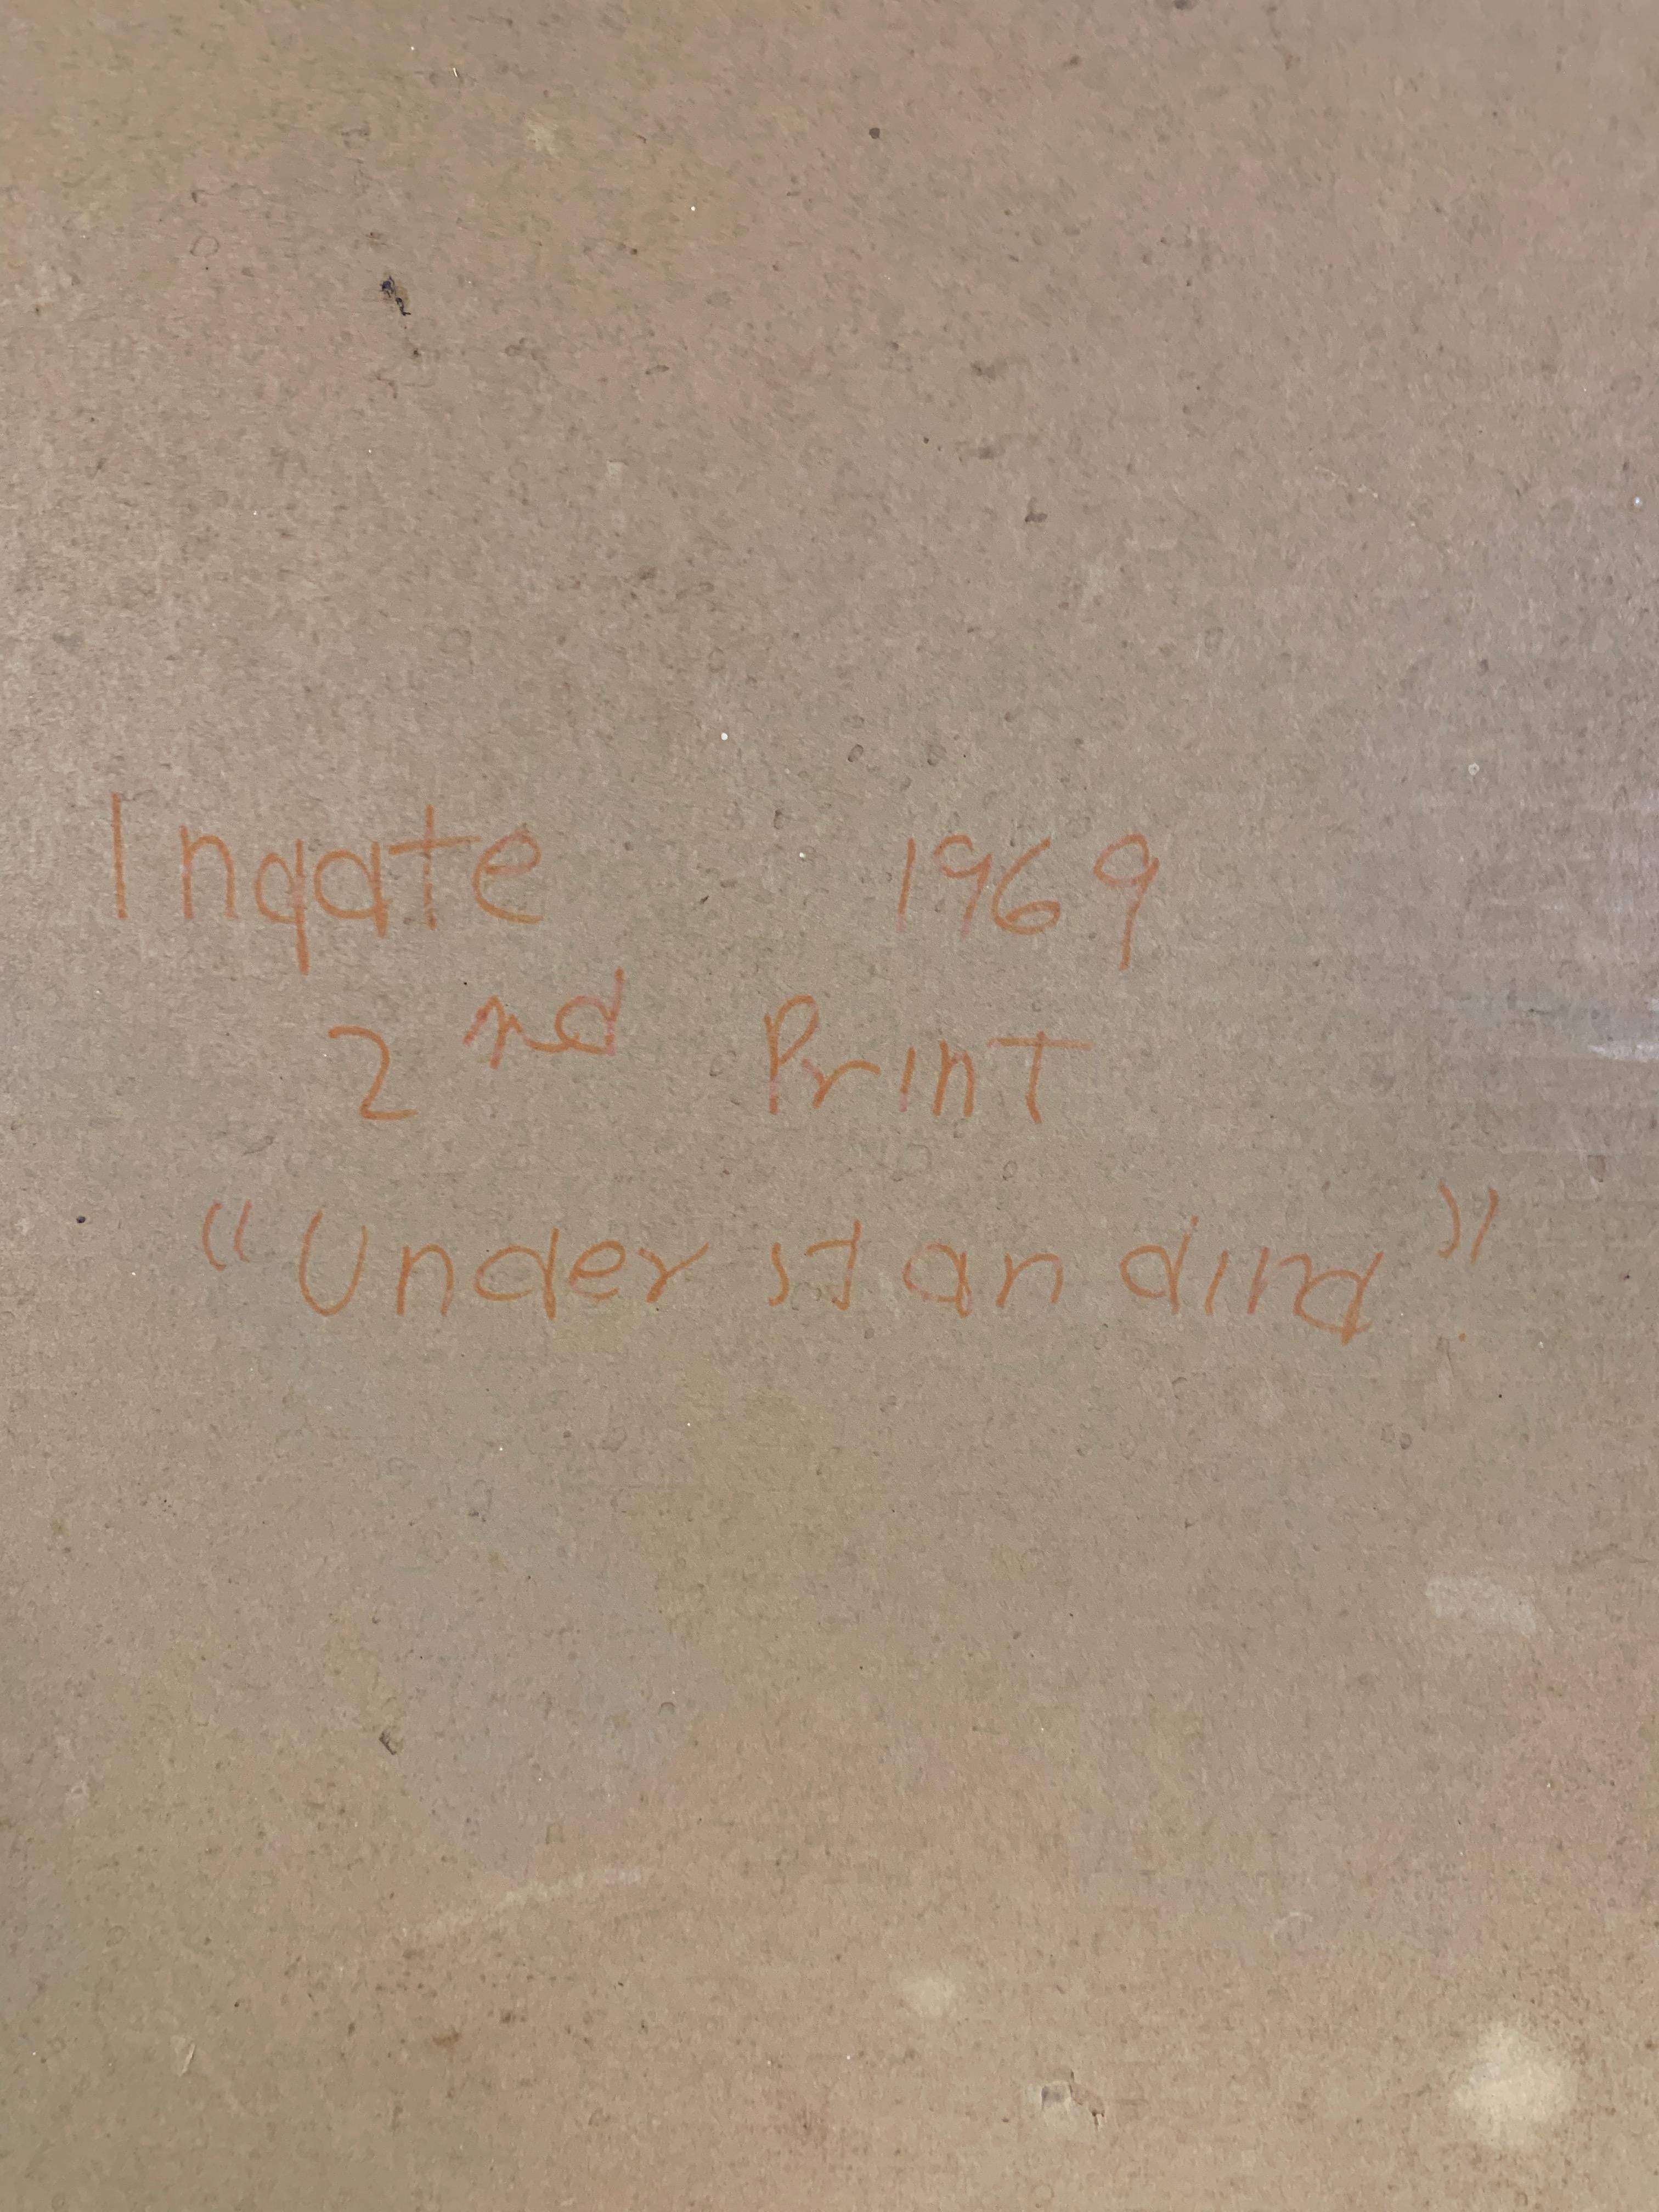 Ingate 1969
2nd Print
"Understanding".